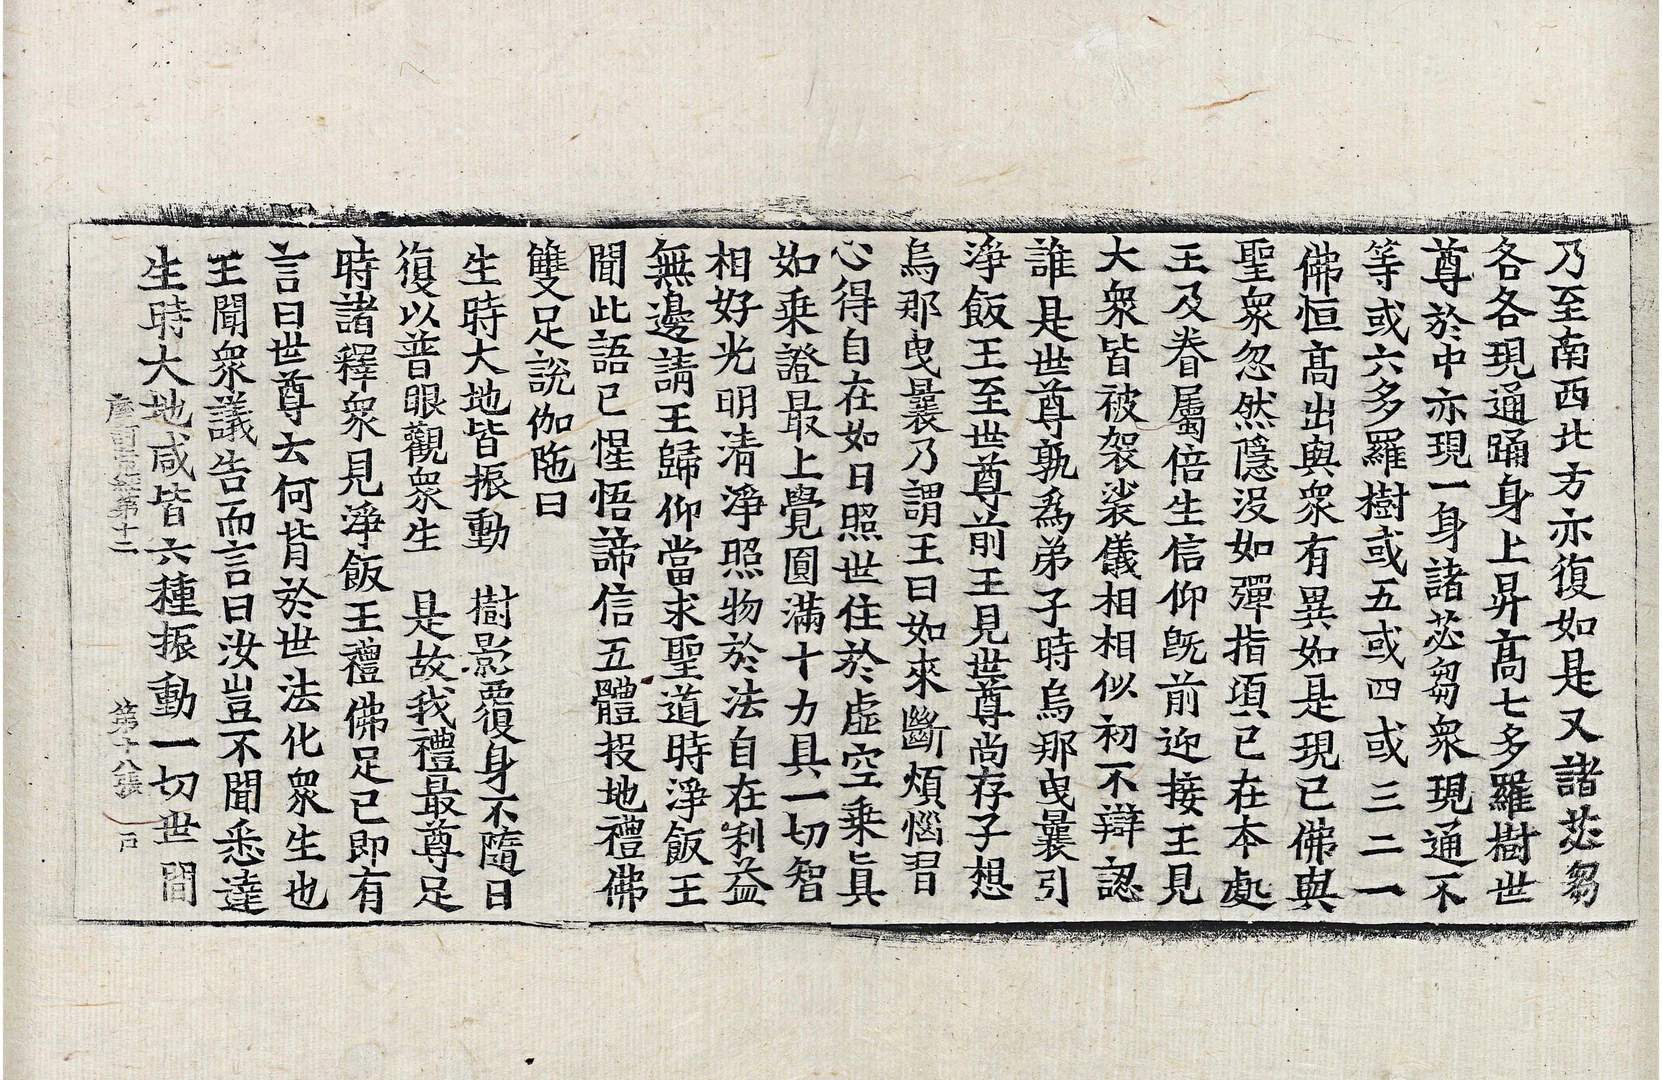 乃至南西北方亦復如是又諸苾芻
各各現通踊身上昇高七多羅樹世
尊於中亦現一身諸苾芻衆現通不
等或六多羅樹或五或四或三二一
佛恒高出與衆有異如是現已佛與
聖衆忽然隱没如彈指頃已在本處
王及眷屬倍生信仰旣前迎接王見
大衆皆被袈裟儀相相似初不辯認
誰是世尊孰爲弟子時烏那曳曩引
淨飯王至世尊前王見世尊尚存子想
烏那曳曩乃謂王曰如來斷煩惱習
心得自在如日照世住於虛空乘眞
如乘證最上覺圓滿十力具一切智
相好光明清淨照物於法自在利益
無邊請王歸仰當求聖道時淨飯王
聞此語已惺悟諦信五體投地禮佛
雙足說伽陁曰
生時大地皆振動　樹影覆身不隨日
復以普眼觀衆生　是故我禮最尊足
時諸釋衆見淨飯王禮佛足已即有
言曰世尊去何背於世法化衆生也
王聞衆議告而言曰汝豈不聞悉達
生時大地咸皆六種振動一切世間
摩訶帝經第十二　第十八張　戶